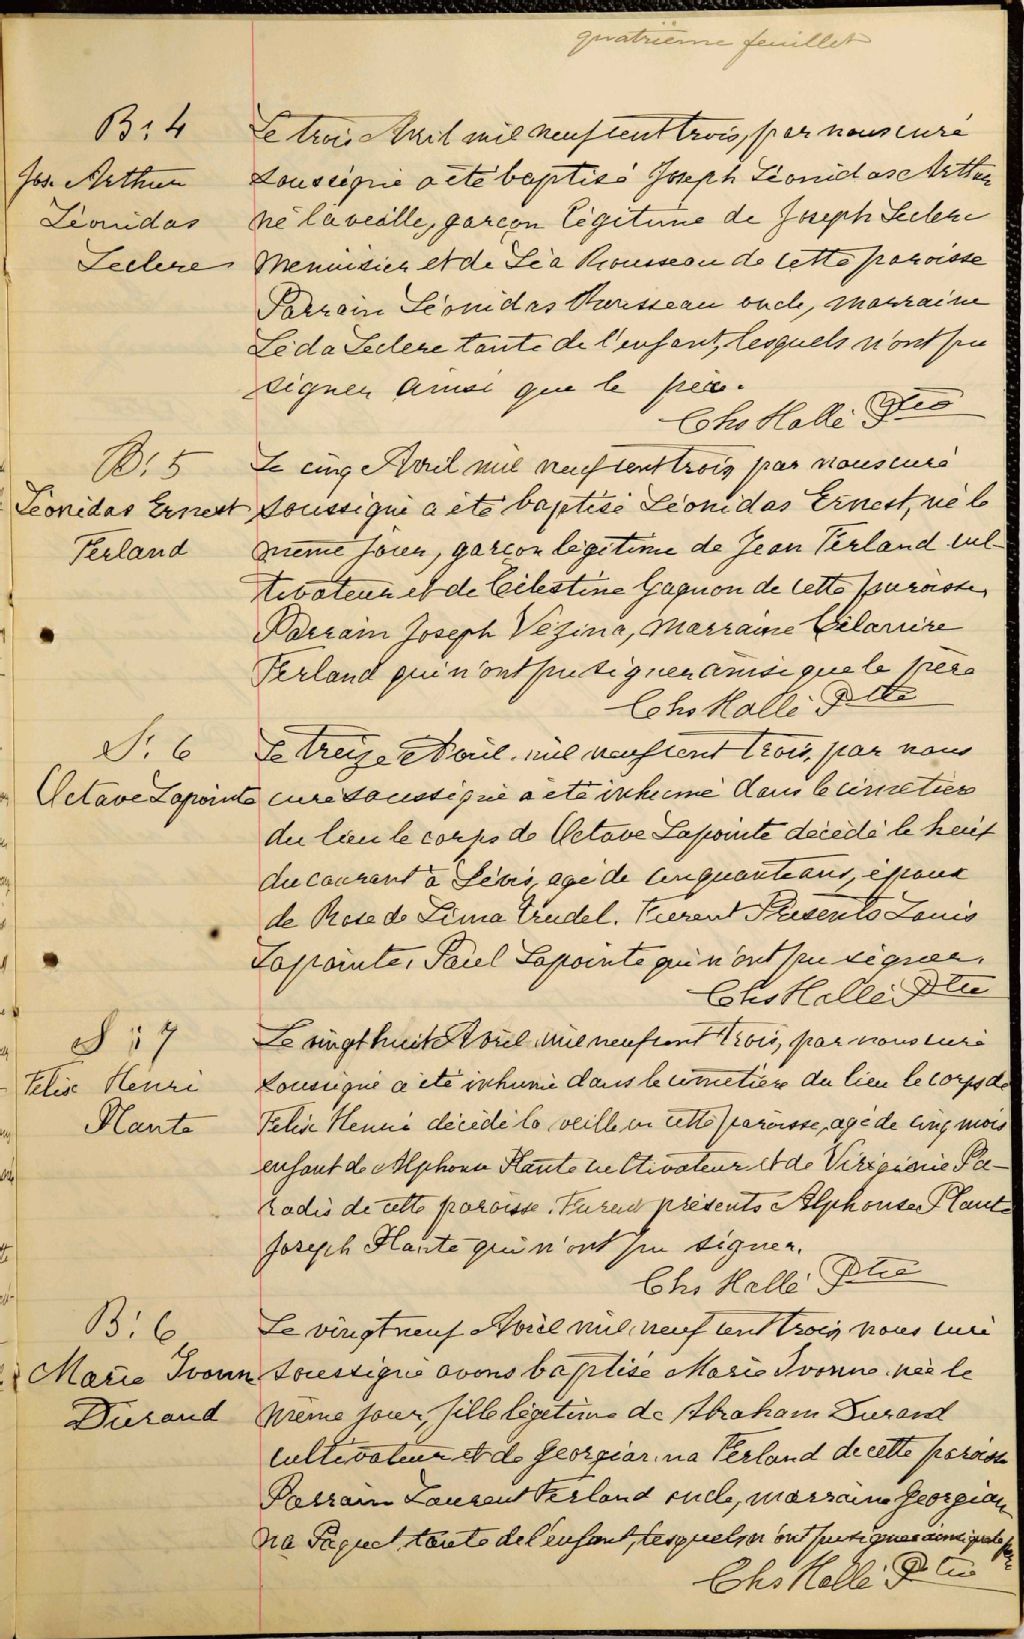 quatrième feuillet
B: 4
Jos. Arthur
Léonidas
Leclerc
Le trois Avril mil neuf cent trois, par nous curé
soussigné a été baptisé Joseph Léonidas Arthur
né la veille, garçon légitime de Joseph Leclerc
Menuisier et de Léa Rousseau de cette paroisse
Parrain Léonidas Rousseau oncle, marraine
Léda Leclerc tante de l'enfant, lesquels n'ont pu
signer ainsi que le père.
Chs Hallé Ptre
B: 5
Léonidas Ernest
Ferland
Le cinq Avril mil neuf cent trois, par nous curé
soussigné a été baptisé Léonidas Ernest, né le
même jour, garçon légitime de Jean Ferland cul-
tivateur et de Célestine Gagnon de cette paroisse,
Parrain Joseph Vézina, Marraine
Ferland qui n'ont pu signer ainsi que le père
Chs Hallé Ptre
S: 6
Octave Lapointe
Le treize Avril mil neuf cent trois, par nous
curé soussigné a été inhumé dans le cimetière
du lieu le corps de Octave Lapointe décédé le huit
du courant à Lévis, agé de cinquante ans, époux
de Rose de Lima Trudel. Furent Présents Louis
Lapointe, Paul Lapointe qui n'ont pu signer.
Chs Hallé Ptre
S: 7
Felix Henri
Plante
Le vingt huit Avril mil neuf cent trois, par nous curé
soussigné a été inhumé dans le cimetière du lieu le corps de
Felix Henri décédé la veille en cette paroisse, agé de cinq mois
enfant de Alphonse Plante cultivateur et de Virginie Pa-
radis de cette paroisse. Furent présents Alphonse Plante
Joseph Plante qui n'ont pu signer.
Chs Hallé Ptre
B: 6
Marie Ivonne
Durand
Le vingt neuf Avril mil neuf cent trois, nous curé
soussigné avons baptisé Marie Ivonne née le
même jour, fille légitime de Abraham Durand
cultivateur et de Georgianna Ferland de cette paroisse
Parrain Laurent Ferland oncle, marraine Georgian
na Paquet, tante de l'enfant, lesquels n'ont pu signer ainsi que le père
Chs Hallé Ptre